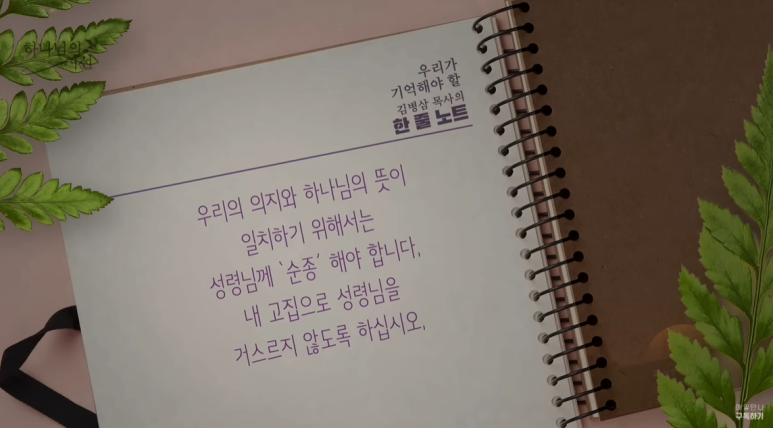 하나님의
우리가
기억해야 할
김병삼 목사의
한 줄 노트
우리의 의지와 하나님의 뜻이
일치하기 위해서는
성령님께 '순종' 해야 합니다.
내 고집으로 성령님을
거스르지 않도록 하십시오.
매일만나
구독하기